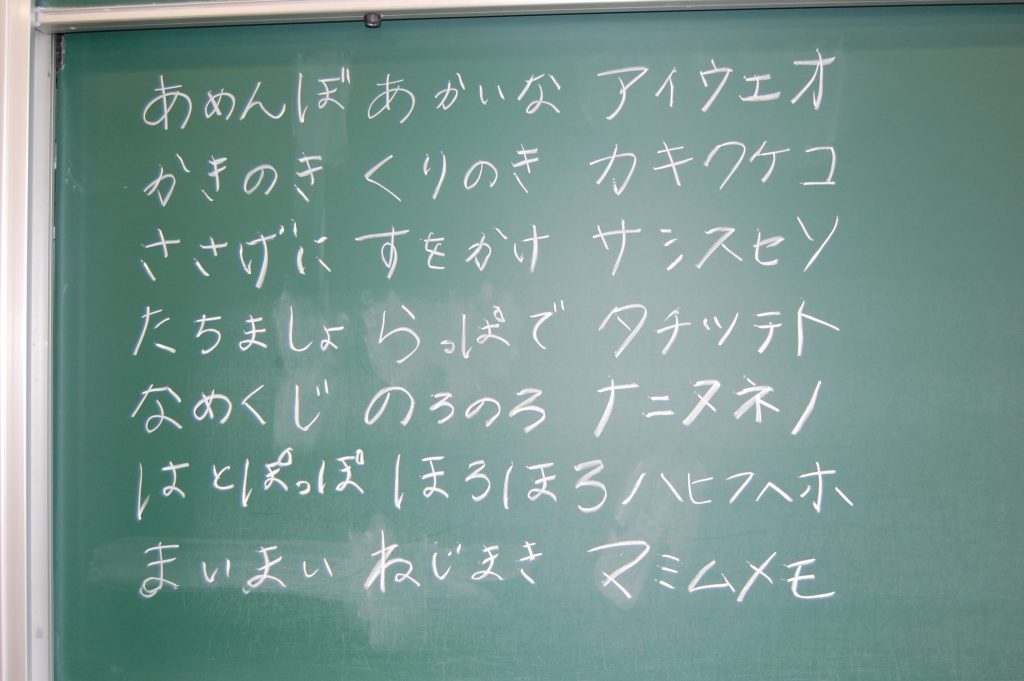 あめんぼ あかいな アイウエオ
かきのき くりのき カキクケコ
ささげに すをかけ サシスセソ
たちましょ らっぱで タチツテト
なめくじ のろのろ ナニヌネノ
はとぽっぽ ほろほろ ハヒフヘホ
まいまい ねじまき マミムメモ